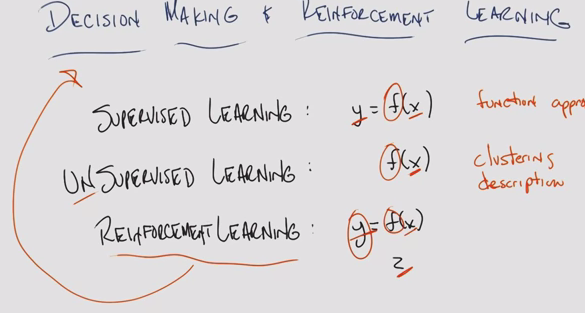 DECISION MAKING & REINFORCEMENT LEARNING
SUPERVISED LEARNING : y = f(x) function appro
UNSUPERVISED LEARNING : f(x) clustering
description
REINFORCEMENT LEARNING : y = f(x)
z